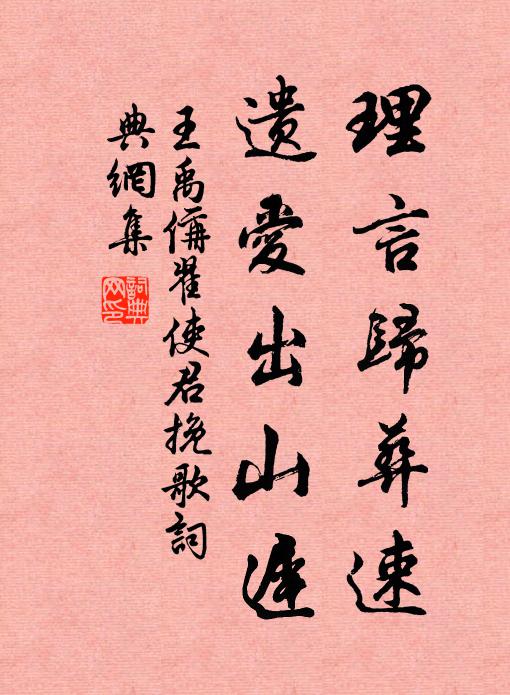 理言歸葬速
遺愛出山遲
王禹偁翟使君挽歌詞
典網集
詞典
网印